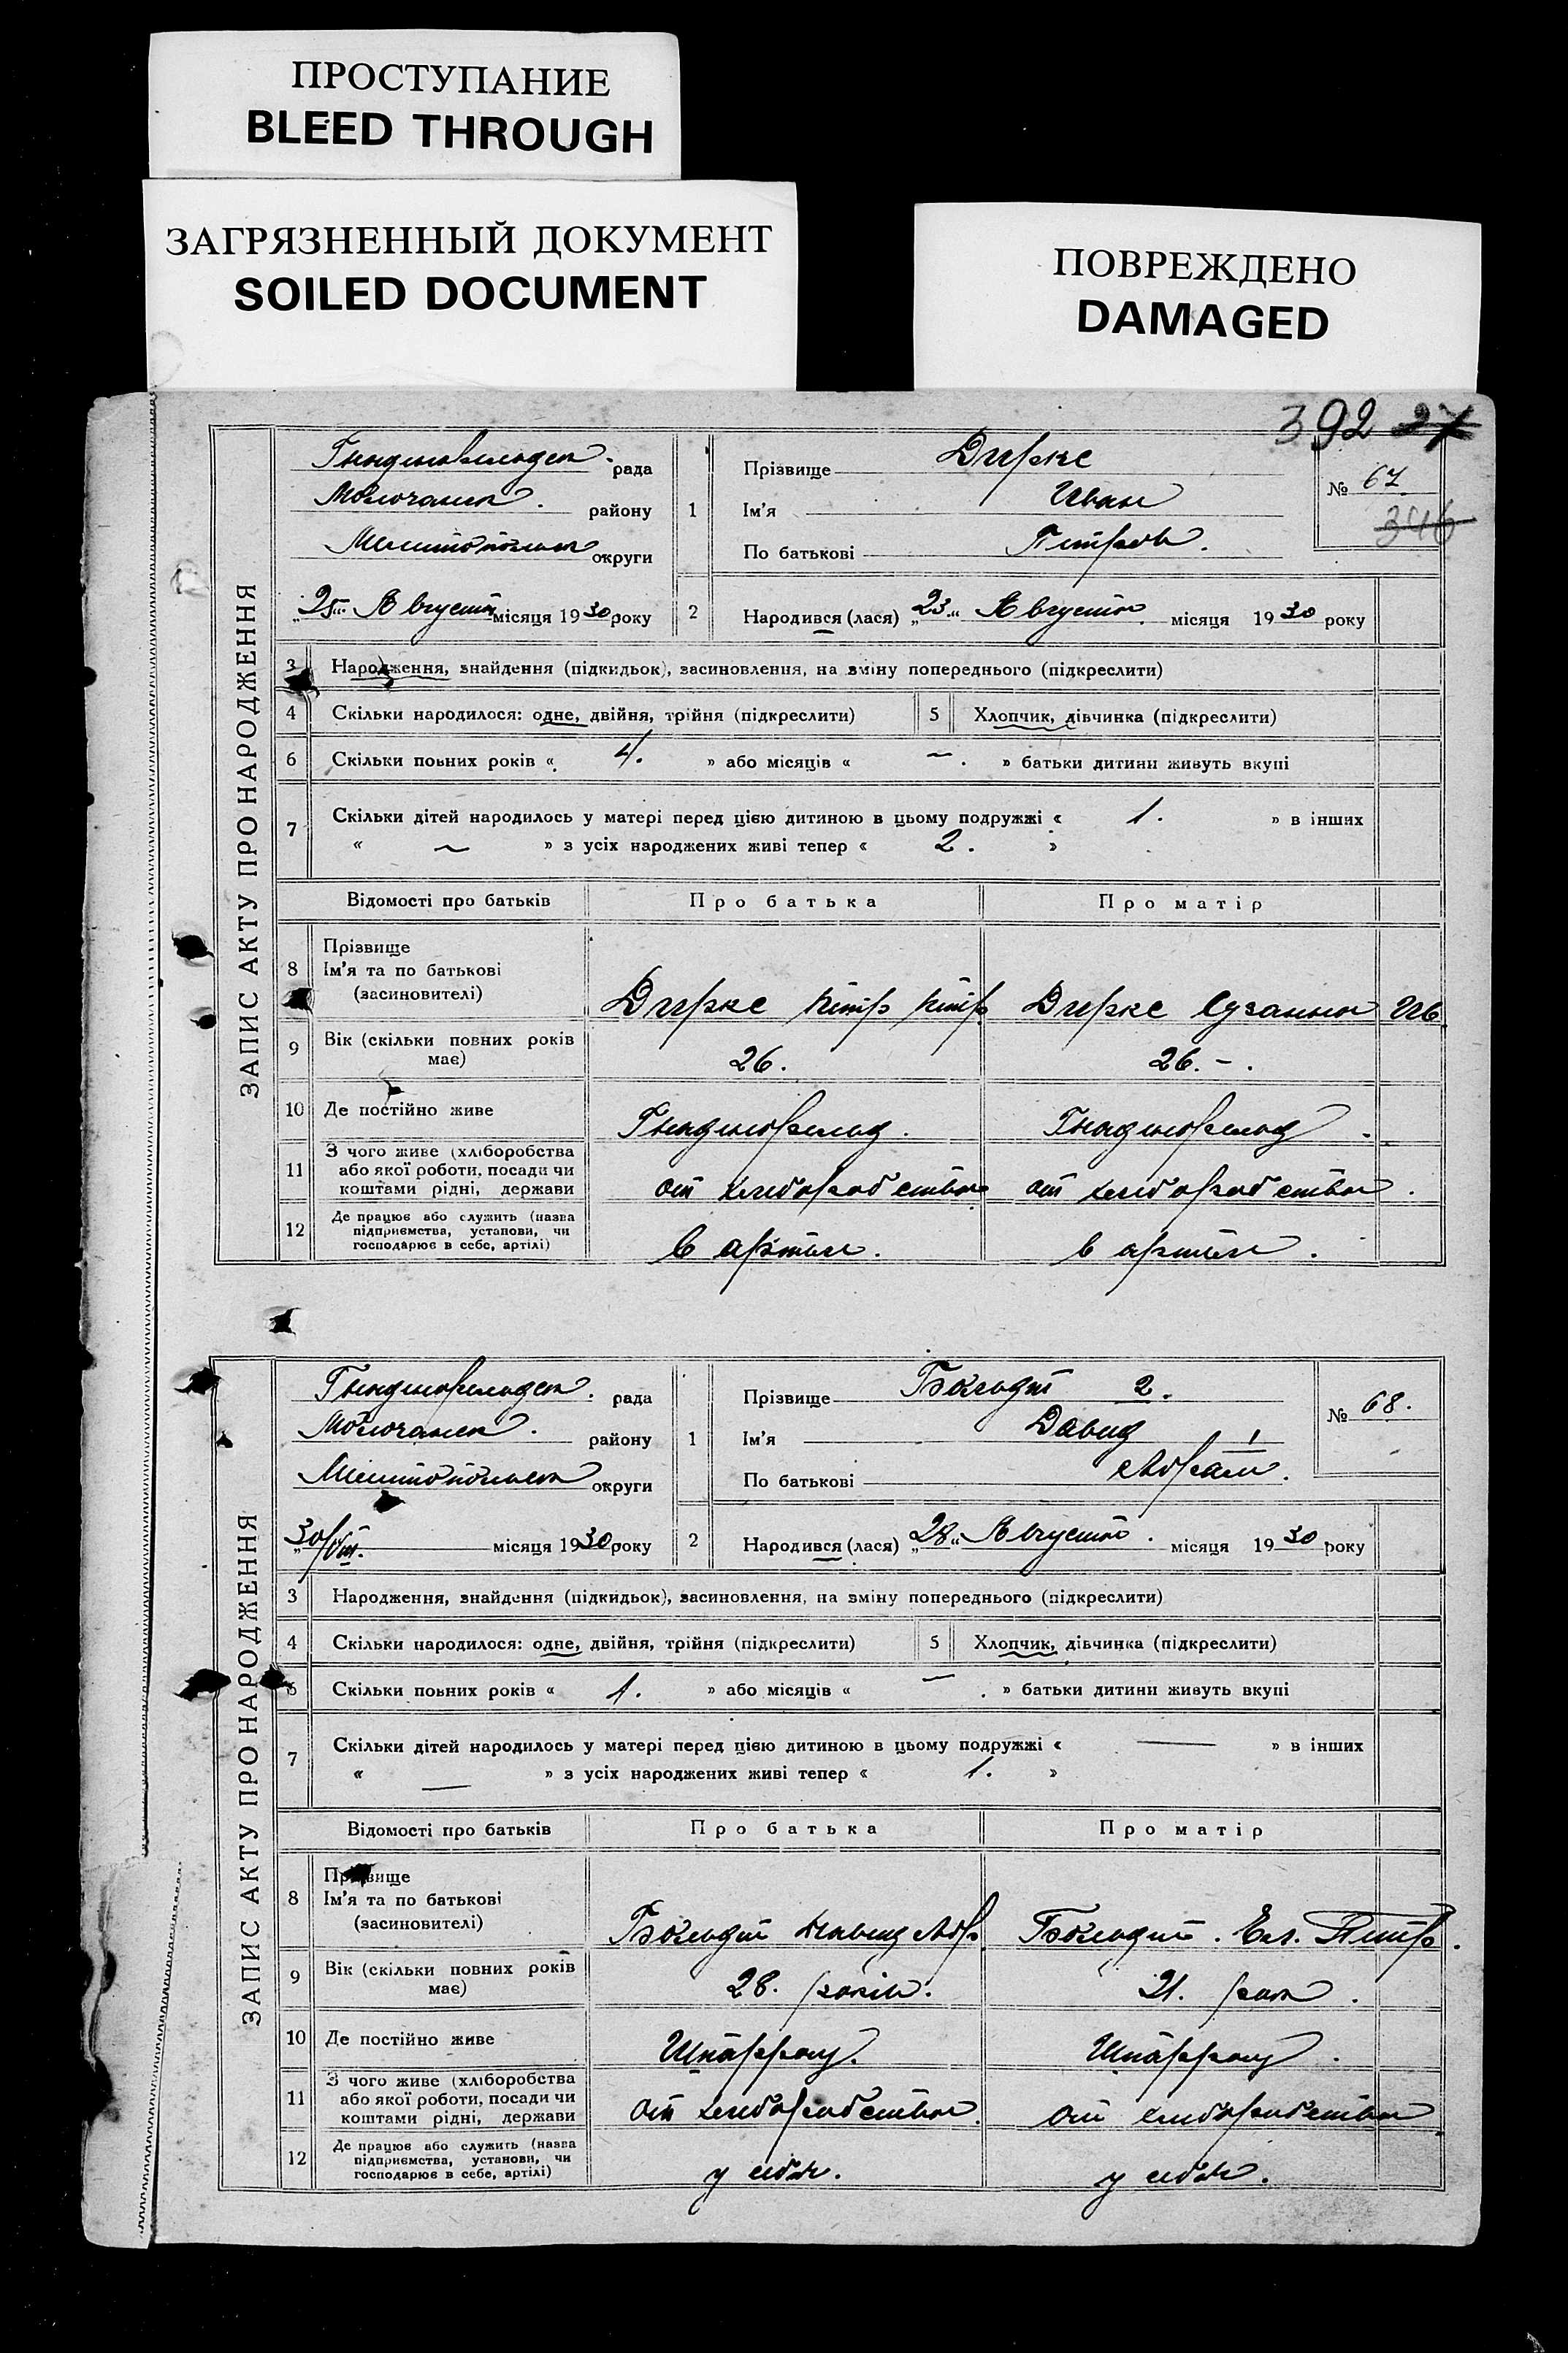 ПРОСТУПАНИЕ
BLEED THROUGH
ЗАГРЯЗНЕННЫЙ ДОКУМЕНТ
SOILED DOCUMENT
ПОВРЕЖДЕНО
DAMAGED
392 27
ЗАПИС АКТУ ПРО НАРОДЖЕННЯ
рада
Молочанск. району
округи
„25“ Августа місяця 1930 року
1
Прізвище Диркс
Ім'я Иван
По батькові Петров.
№ 67
346
2
Народився (лася) „23“ Августа місяця 1930 року
3 Народження, знайдення (підкидьок), засиновлення, на зміну попереднього (підкреслити)
4 Скільки народилося: одне, двійня, трійня (підкреслити)
5 Хлопчик, дівчинка (підкреслити)
6 Скільки повних років « 4. » або місяців « – . » батьки дитини живуть вкупі
7 Скільки дітей народилось у матері перед цією дитиною в цьому подружжі « 1. » в інших
« ~ » з усіх народжених живі тепер « 2. »
Відомості про батьків Про батька Про матір
8 Прізвище
Ім'я та по батькові
(засновителі)
Диркс Петр Петр. Диркс Сузанна Ив
9 Вік (скільки повних років має) 26. 26. – .
10 Де постійно живе Гнаденфельд. Гнаденфельд.
11 З чого живе (хліборобства
або якої роботи, посади чи
коштами рідні, держави
от хлеборобства от хлеборобства.
12 Де працює або служить (назва
підприємства, установи, чи
господарює в себе, артілі)
в артели. в артели.
ЗАПИС АКТУ ПРО НАРОДЖЕННЯ
рада
Молочанск. району
округи
30/VIII. місяця 1930 року
1
Прізвище Больдт 2.
Ім'я Давид 1
По батькові Абрам.
№ 68.
2
Народився (лася) „28“ Августа. місяця 1930 року
3 Народження, знайдення (підкидьок), засиновлення, на зміну попереднього (підкреслити)
4 Скільки народилося: одне, двійня, трійня (підкреслити)
5 Хлопчик, дівчинка (підкреслити)
6 Скільки повних років « 1. » або місяців « – . » батьки дитини живуть вкупі
7 Скільки дітей народилось у матері перед цією дитиною в цьому подружжі « — » в інших
« — » з усіх народжених живі тепер « 1. »
Відомості про батьків Про батька Про матір
8 Прізвище
Ім'я та по батькові
(засиновителі)
Больдт Давид Абр. Больдт. Ел. Петр.
9 Вік (скільки повних років має) 28. років. 21. рок.
10 Де постійно живе Шпаррау. Шпаррау.
11 З чого живе (хліборобства
або якої роботи, посади чи
коштами рідні, держави
от хлеборобства. от хлеборобства
12 Де працює або служить (назва
підприємства, установи, чи
господарює в себе, артілі)
у себе. у себе.